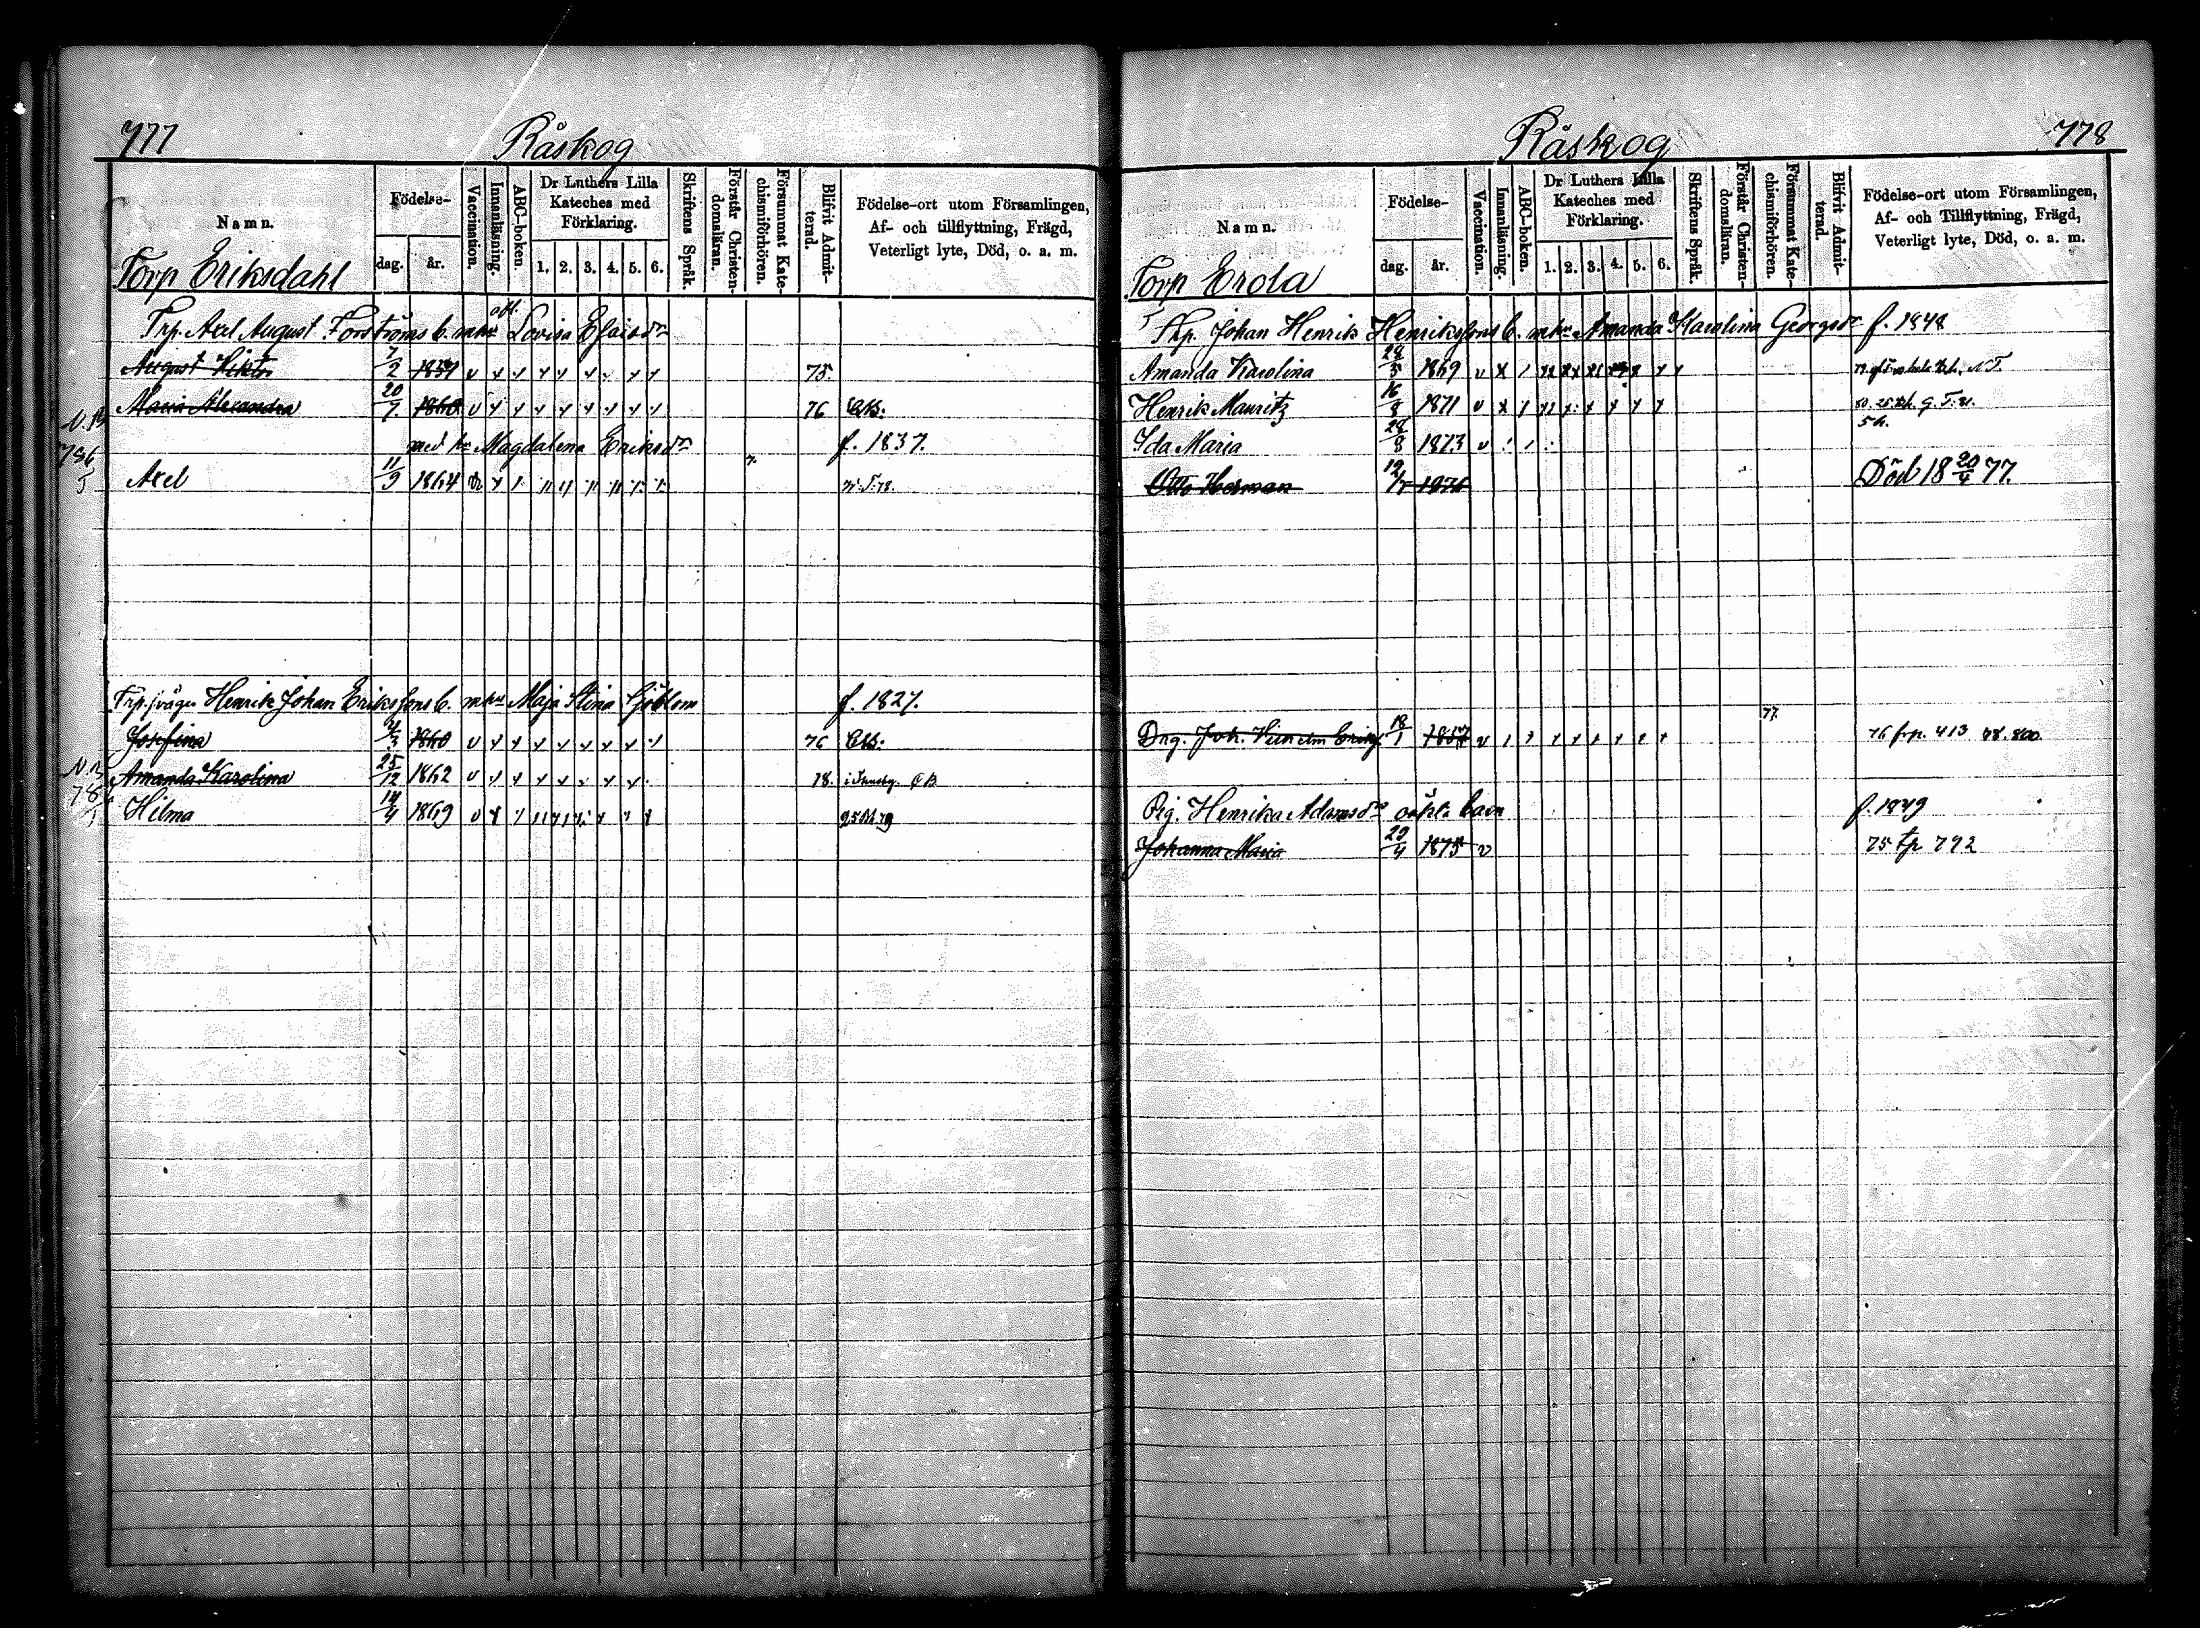 777
Råskog
Namn.
Födelse-
dag.
år.
Vaccination.
Innanläsning.
ABC-boken.
Dr Luthers Lilla
Kateches med
Förklaring.
1. 2. 3. 4. 5. 6.
Skriftens Språk.
Förstår Christen-
domsläran.
Försummat Kate-
chismiförhören.
Blifvit Admit-
terad.
Födelse-ort utom Församlingen,
Af- och tillflyttning, Frägd,
Veterligt lyte, Död, o. a. m.
Torp Eriksdahl
Trp. Axel August Forströms b. m hu Lovisa Esaisdr
August Viktor 7/2 1859 v 75.
Maria Alexandra 20/7 1860 v 76
med hu Magdalena Eriksdr f. 1837.
Axel 11/9 1864
Henrik Johan Erikssons b. m hu Maja Stina Sjöblom f. 1827.
Josefina 1860 v 76
Amanda Karolina 25/12 1862 v 78.
Hilma 14/4 1869 v
Råskog
778
Namn.
Födelse-
dag.
år.
Vaccination.
Innanläsning.
ABC-boken.
Dr Luthers Lilla
Kateches med
Förklaring.
1. 2. 3. 4. 5. 6.
Skriftens Språk.
Förstår Christen-
domsläran.
Försummat Kate-
chismiförhören.
Blifvit Admit-
terad.
Födelse-ort utom Församlingen,
Af- och Tillflyttning, Frägd,
Veterligt lyte, Död, o. a. m.
Torp Erola
Johan Henrik Henrikssons b. m hu Amanda Karolina Georgsdr f. 1848
Amanda Karolina 28/5 1869 v
Henrik Mauritz 16/8 1871 v
Ida Maria 28/8 1873 v
Otto Herman 1876 Död 18 20/4 77.
77.
Drg. Joh. Vilhelm 18/1 1857 v 76 fr p. 413 78. 800
Pig. Henrika Adamsdr oäkta barn f. 1849
Johanna Maria 29/4 1875 v 75 t p 792